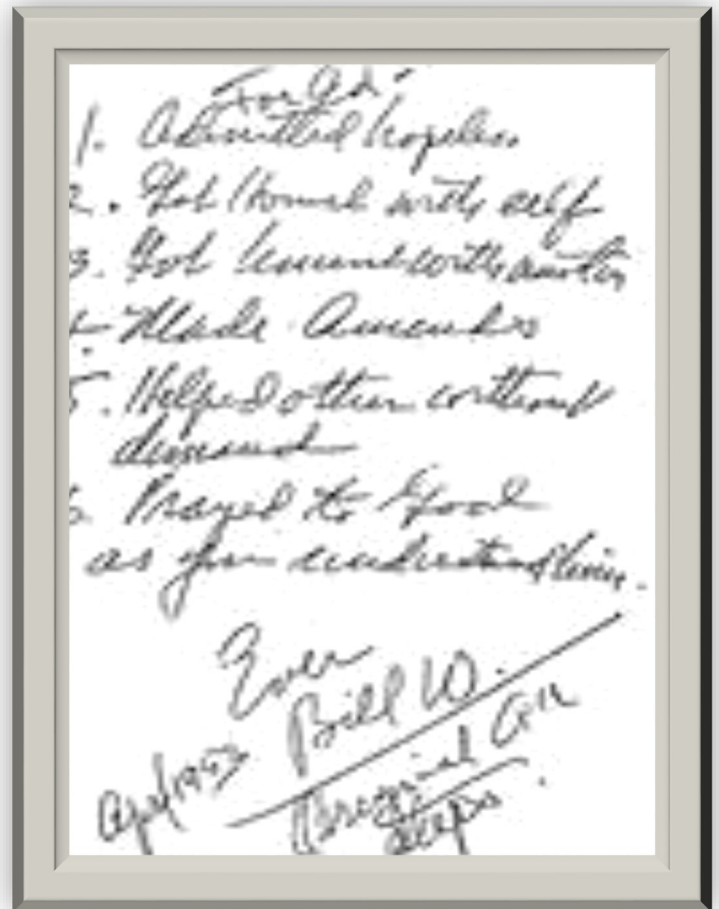 For Ed.
1. Admitted hopeless
2. Got honest with self
3. Got honest with another
4. Made Amends
5. Helped others without
demand
6. Prayed to God
as you understand Him.
Ever
Bill W.
Apr/1953
Original AA
Steps.